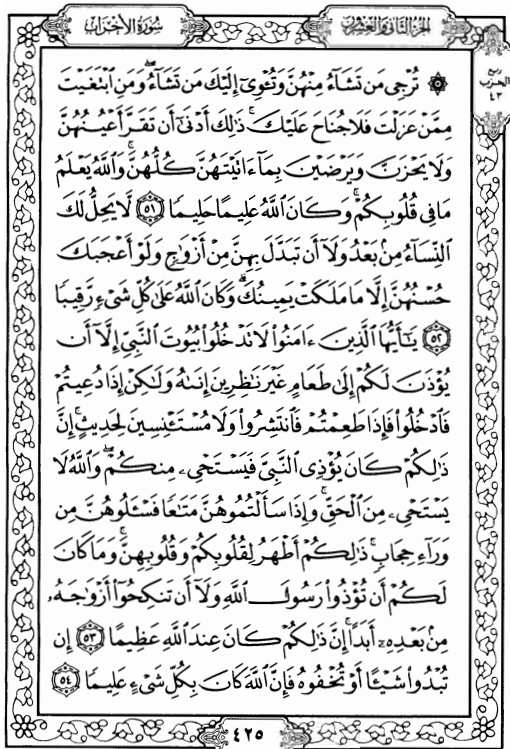 سُورَةُ الأَحْزَابِ
الجُزْءُ الثَّانِي وَالعِشْرُونَ
ربع
الحزب
٤٣
۞ تُرْجِى مَن تَشَآءُ مِنْهُنَّ وَتُـْٔوِىٓ إِلَيْكَ مَن تَشَآءُۖ وَمَنِ ٱبْتَغَيْتَ
مِمَّنْ عَزَلْتَ فَلَا جُنَاحَ عَلَيْكَۚ ذَٰلِكَ أَدْنَىٰٓ أَن تَقَرَّ أَعْيُنُهُنَّ
وَلَا يَحْزَنَّ وَيَرْضَيْنَ بِمَآ ءَاتَيْتَهُنَّ كُلُّهُنَّۚ وَٱللَّهُ يَعْلَمُ
مَا فِى قُلُوبِكُمْۚ وَكَانَ ٱللَّهُ عَلِيمًا حَلِيمًا ٥١ لَّا يَحِلُّ لَكَ
ٱلنِّسَآءُ مِنۢ بَعْدُ وَلَآ أَن تَبَدَّلَ بِهِنَّ مِنْ أَزْوَٰجٍ وَلَوْ أَعْجَبَكَ
حُسْنُهُنَّ إِلَّا مَا مَلَكَتْ يَمِينُكَۗ وَكَانَ ٱللَّهُ عَلَىٰ كُلِّ شَىْءٍ رَّقِيبًا
٥٢ يَٰٓأَيُّهَا ٱلَّذِينَ ءَامَنُوا۟ لَا تَدْخُلُوا۟ بُيُوتَ ٱلنَّبِىِّ إِلَّآ أَن
يُؤْذَنَ لَكُمْ إِلَىٰ طَعَامٍ غَيْرَ نَٰظِرِينَ إِنَىٰهُ وَلَٰكِنْ إِذَا دُعِيتُمْ
فَٱدْخُلُوا۟ فَإِذَا طَعِمْتُمْ فَٱنتَشِرُوا۟ وَلَا مُسْتَـْٔنِسِينَ لِحَدِيثٍۚ إِنَّ
ذَٰلِكُمْ كَانَ يُؤْذِى ٱلنَّبِىَّ فَيَسْتَحْىِۦ مِنكُمْۖ وَٱللَّهُ لَا
يَسْتَحْىِۦ مِنَ ٱلْحَقِّۚ وَإِذَا سَأَلْتُمُوهُنَّ مَتَٰعًا فَسْـَٔلُوهُنَّ مِن
وَرَآءِ حِجَابٍۚ ذَٰلِكُمْ أَطْهَرُ لِقُلُوبِكُمْ وَقُلُوبِهِنَّۚ وَمَا كَانَ
لَكُمْ أَن تُؤْذُوا۟ رَسُولَ ٱللَّهِ وَلَآ أَن تَنكِحُوٓا۟ أَزْوَٰجَهُۥ
مِنۢ بَعْدِهِۦٓ أَبَدًاۚ إِنَّ ذَٰلِكُمْ كَانَ عِندَ ٱللَّهِ عَظِيمًا ٥٣ إِن
تُبْدُوا۟ شَيْـًٔا أَوْ تُخْفُوهُ فَإِنَّ ٱللَّهَ كَانَ بِكُلِّ شَىْءٍ عَلِيمًا ٥٤
٤٢٥